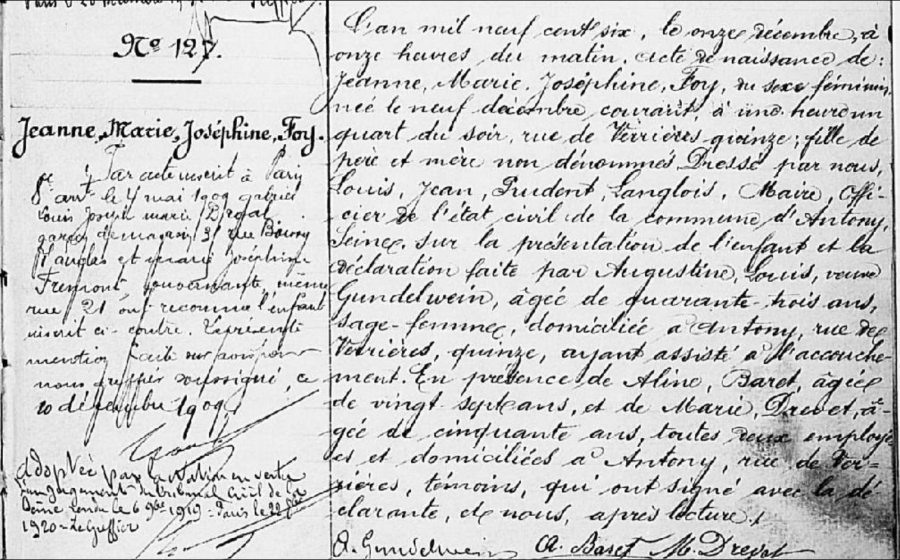 Nº 127.
Jeanne, Marie, Joséphine, Foy.
Par acte inscrit à Paris
8e arrt le 4 mai 1909 gabriel
Louis Joseph marie
garçon de magasin 31 rue Boissy
d'anglas et marie Joséphine
Fremont, gouvernante, même
rue 21 ont reconnu l'enfant
inscrit ci-contre.
mention faite
nous greffier soussigné, ce
10 décembre 1909
Adoptée par la Nation en vertu
d'un jugement du tribunal Civil de la
Seine rendu le 6 9bre 1919. Paris le 22
1920 - Le Greffier
L'an mil neuf cent six, le onze décembre, à
onze heures du matin. Acte de naissance de:
Jeanne, Marie, Joséphine, Foy, du sexe féminin,
née le neuf décembre courant, à une heure un
quart du soir, rue de Verrières quinze; fille de
père et mère non dénommés. Dressé par nous,
Louis, Jean, Prudent, Langlois, Maire, Offi-
cier de l'état civil de la commune d'Antony,
Seine, sur la présentation de l'enfant et la
déclaration faite par Augustine, Louis, veuve
Gundelwein, âgée de quarante-trois ans,
sage-femme, domiciliée à Antony, rue de
Verrières, quinze, ayant assisté à l'accouche-
ment. En présence de Aline, Baret, âgée
de vingt-sept ans, et de Marie, Drevet, â-
gée de cinquante ans, toutes deux employé
es et domiciliées à Antony, rue de Ver-
rières, témoins, qui ont signé avec la dé
clarante, et nous, après lecture.
A. Gundelwein A. Baret M. Drevet